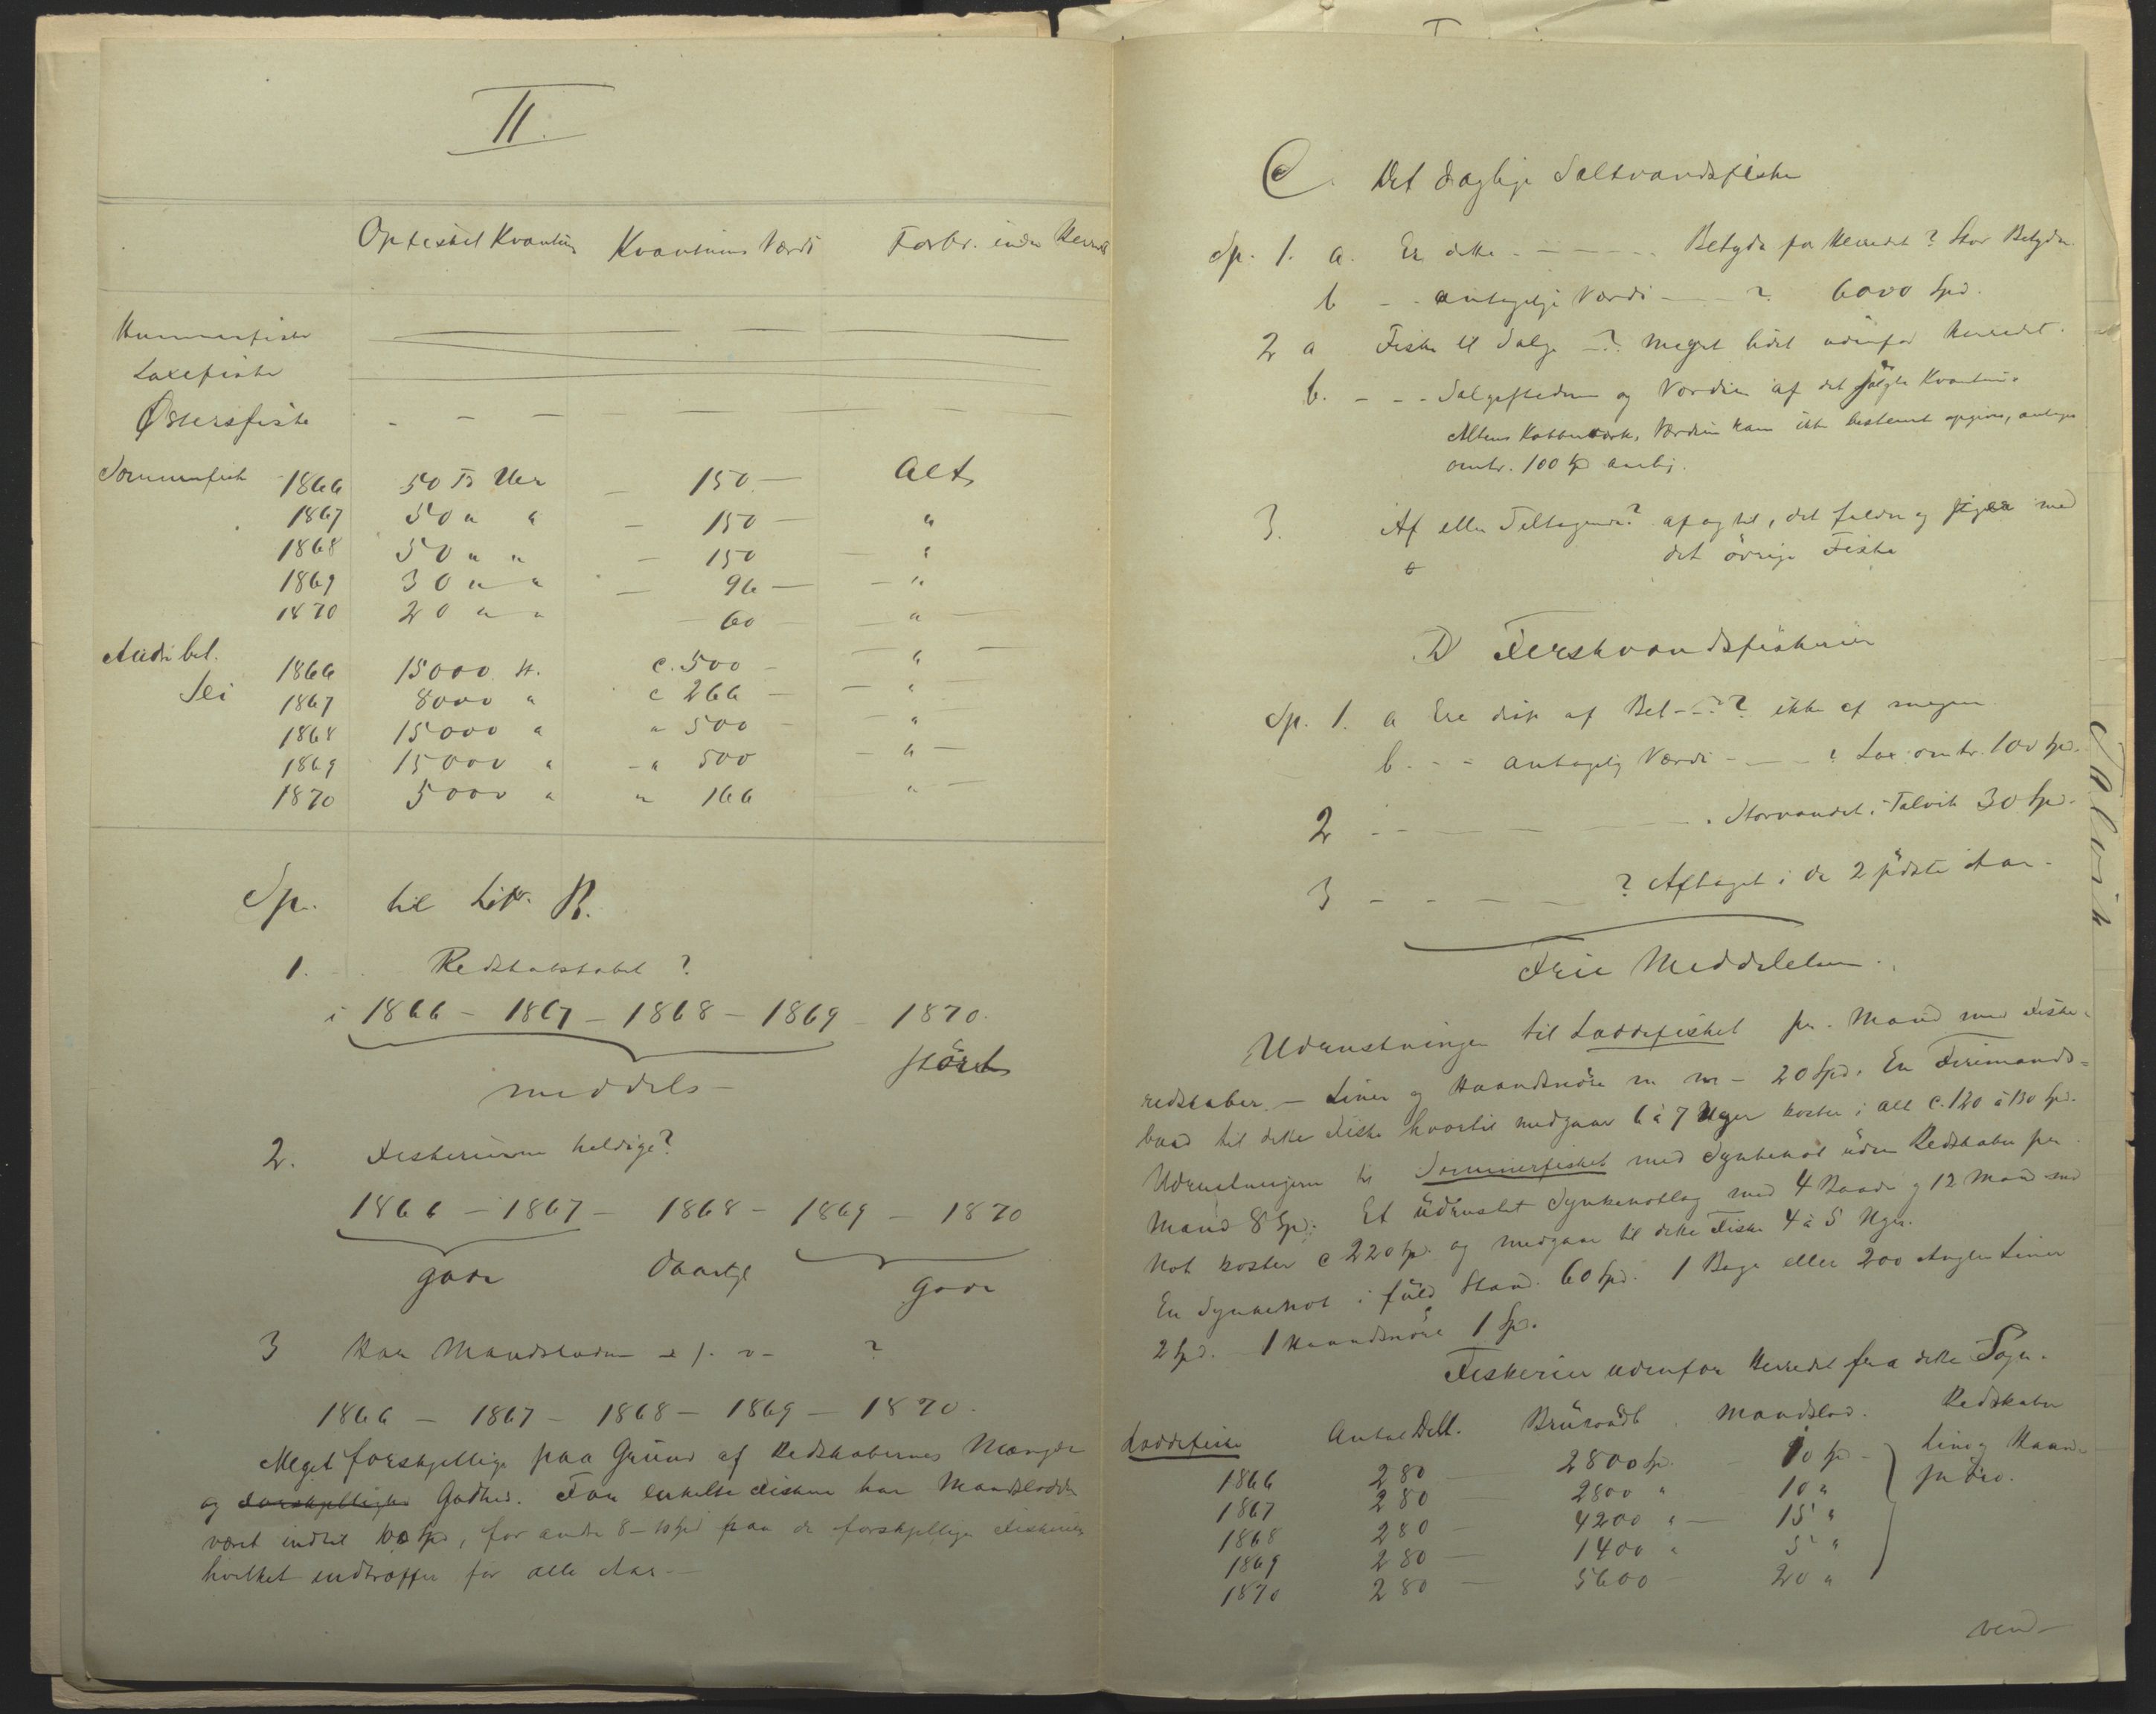 II.
Opfisket Kvantum Kvantums Værdi Forbr. inden Herredet
Hummerfiske
Laxefiske
Østersfiske - - -
Sommerfisk 1866 50 Tr Uer - 150 - Alt
1867 50 " " - 150 - "
1868 50 " " - 150 - "
1869 30 " " - 96 - "
1870 20 " " - 60 - "
Andr. bet. 1866 15000 St. c. 500 - "
Sei 1867 8000 " c 266 - "
1868 15000 " " 500 - "
1869 15000 " " 500 - "
1870 5000 " " 166 - "
Sp. til Litr. B.
1. Redskabshabet?
i 1866 - 1867 - 1868 - 1869 - 1870.
middels - størst
2. Fiskerierne heldige?
1866 - 1867 - 1868 - 1869 - 1870
gode daarlige gode
3 Har Mandslodden ?
1866 - 1867 - 1868 - 1869 - 1870.
Meget forskjellige paa Grund af Redskabernes Mængde
og forskjellige Godhed. For enkelte Fiskere har Mandslodden
været indtil 100 Spd, for andre 8-10 Spd paa de forskjellige Fiskerier
hvilket indtræffer for alle Aar -
C. Det daglige Saltvandsfiske
Sp. 1. a. Er dette - - - - Betyd. for Herredet? Stor Betydn.
b - - antagelige Værdi - - ? 6000 Spd.
2 a Fiske til Salg - ? Meget lidet udenfor Herredet.
b. - - - Salgsstederne og Værdien af det solgte Kvantum
Altens Kobberværk, Værdien kan ikke bestemt opgives, antages
omtr. 100 Spd aarlig.
3. Af eller Tiltagende? af og til, det falder og stiger med
det øvrige Fiske
D Ferskvandsfiskerier
Sp. 1. a Ere disse af Bet - - ?? ikke af megen
b. - - antagelig Værdi - - - ? Lax omtr. 100 Spd.
2 - - - - - Storvandet i Talvik 30 Spd.
3 - - - - ? Aftaget i de 2 sidste Aar.
Frie Meddelelser.
Udrustningen til Loddefisket pr. Mand med Fiske-
redskaber. - Liner og Haandsnøre m m - 20 Spd. En Firemands-
baad til dette Fiske hvortil medgaar 6 à 7 Uger koster i alt c. 120 à 130 Spd.
Udrustningen til Sommerfisket med Synkenot uden Redskaber pr
Mand 8 Spd. Et udrustet Synkenotlag med 4 Baade og 12 Mand med
Not koster c 220 Spd. og medgaar til dette Fiske 4 à 5 Uger.
En Synkenot i fuld Stand. 60 Spd. 1 Bage eller 200 Angler Liner
2 Spd. 1 Haandsnøre 1 Spd.
Fiskerier udenfor Herredet fra dette Sogn.
Loddefiske Antal Delt. Bruttoudb. Mandslod. Redskaber
1866 280 - 2800 Spd. - 10 Spd - Line og Haand-
1867 280 - 2800 " 10 " snøre.
1868 280 - 4200 " - 15 "
1869 280 - 1400 " 5 "
1870 280 - 5600 20 "
vend -
Talvik